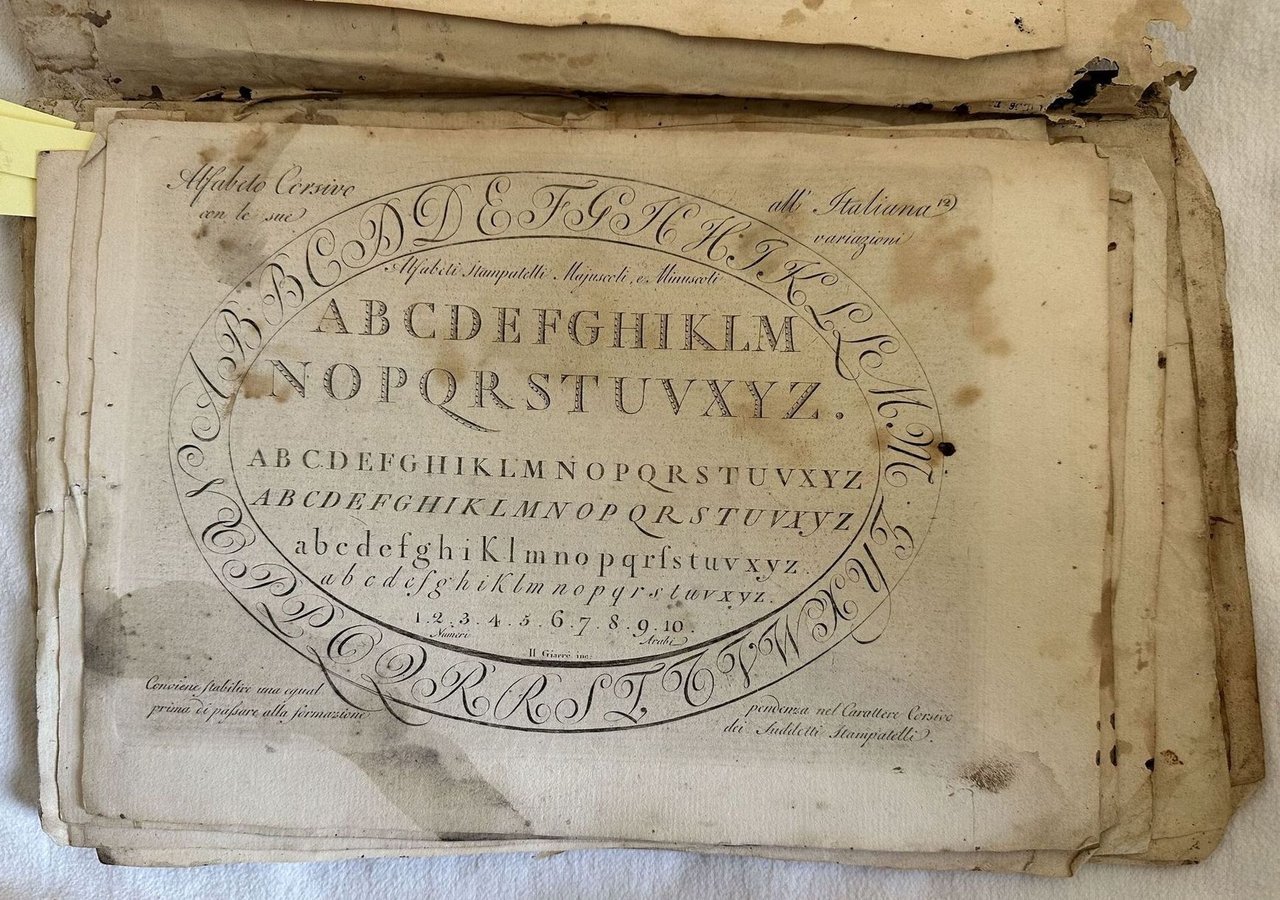 Alfabeto Corsivo all' Italiana 12
con le sue variazioni
A B B C D D E F G H H I K L L M M N
O P P Q Q R R S T T V W X
Alfabeti Stampatelli Majuscoli, e Minuscoli
ABCDEFGHIKLM
NOPQRSTUVXYZ.
ABCDEFGHIKLMNOPQRSTUVXYZ
ABCDEFGHIKLMNOPQRSTUVXYZ
abcdefghiKlmnopqrſstuvxyz.
abcdefghiKlmnopqrstuvxyz.
1.2.3.4.5.6.7.8.9.10
Numeri Arabi
Conviene ſtabilire una egual pendenza nel Carattere Corsivo
prima di paſsare alla formazione dei Suddetti Stampatelli.